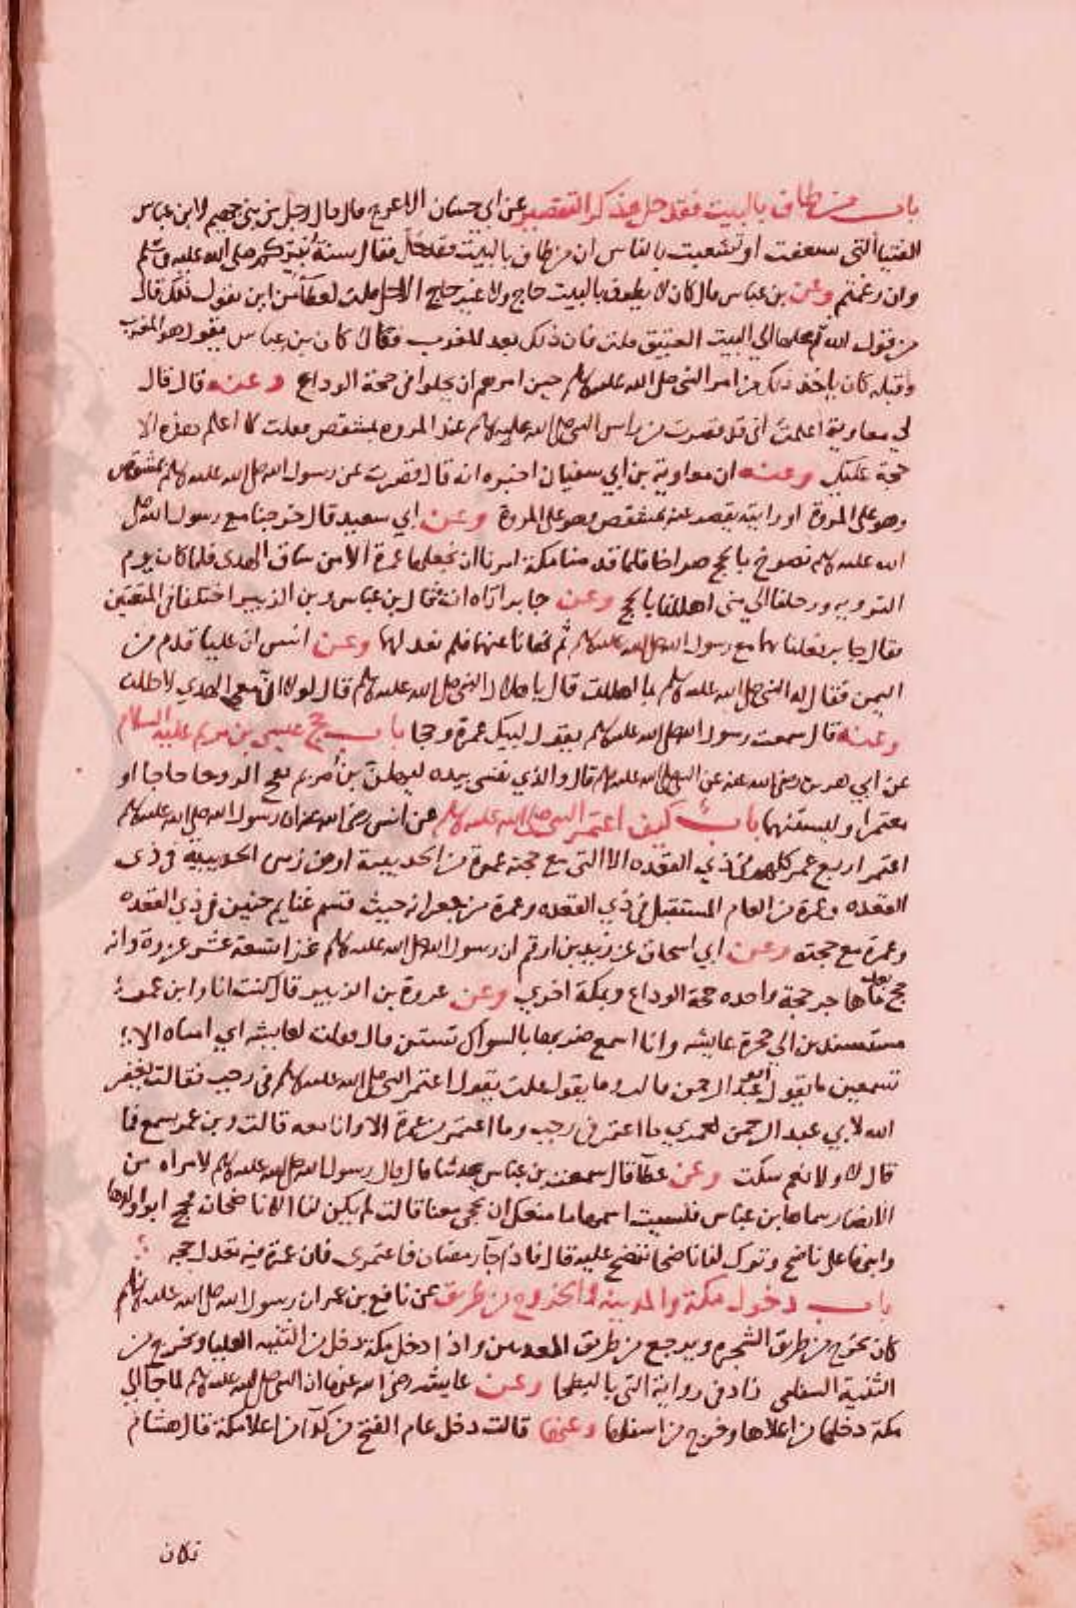 باب من طاف بالبيت فقد حل وذكر التقصير عن ابي حسان الاعرج قال قال رجل من بني جهيم لابن عباس
الفتيا التي سغفت او تشعبت بالناس ان من طاف بالبيت فقد حل فقال سنة نبيكم صلى الله عليه وسلم
وان رغمتم وعن بن عباس قال كان لا يطوف بالبيت حاج ولا غير حاج الا حل قلت لعطا من اين يقول ذلك قال
من قول الله ثم محلها الي البيت العتيق قلت فان ذلك بعد المعرف فقال كان بن عباس يقول هو بعد المعرف
وقبله كان ياخذ ذلك من امر النبي صلى الله عليه وسلم حين امرهم ان يحلوا في حجة الوداع وعنه قال قال
لي معاوية اعلمت اني قد قصرت من راس النبي صلى الله عليه وسلم عند المروه بمشقص فقلت لا اعلم هذه الا
حجة عليك وعنه ان معاوية بن ابي سفيان اخبره انه قال قصرت عن رسول الله صلى الله عليه وسلم بمشقص
وهو على المروة او رايته يقصر عنه بمشقص وهو على المروة وعن ابي سعيد قال خرجنا مع رسول الله صلى
الله عليه وسلم نصرخ بالحج صراخا فلما قدمنا مكة امرنا ان نجعلها عمرة الا من ساق الهدى فلما كان يوم
الترويه ورحلنا الي منى اهللنا بالحج وعن جابر اتاه ات فقال بن عباس وبن الزبير اختلفا في المتعتين
فقال جابر فعلناهما مع رسول الله صلى الله عليه وسلم ثم نهانا عنهما فلم نعد لهما وعن انس ان عليا قدم من
اليمن فقال له النبي صلى الله عليه وسلم بما اهللت قال باهلال النبي صلى الله عليه وسلم قال لولا ان معي الهدي لاحللت
وعنه قال سمعت رسول الله صلى الله عليه وسلم يقول لبيك عمرة وحجا باب حج عيسى بن مريم عليه السلام
عن ابي هريرة رضي الله عنه عن النبي صلى الله عليه وسلم قال والذي نفسي بيده ليهلن بن مريم بفج الروحا حاجا او
معتمرا او ليستنهما باب كيف اعتمر النبي صلى الله عليه وسلم عن انس رضي الله عنه ان رسول الله صلى الله عليه وسلم
اعتمر اربع عمر كلهن في ذي القعده الا التي مع حجته عمرة من الحديبية او من زمن الحديبية في ذي
القعده وعمرة من العام المستقبل في ذي القعده وعمرة من جعرانه حيث قسم غنايم حنين في ذي القعده
وعمرة مع حجته وعن ابي اسحاق عن زيد بن ارقم ان رسول الله صلى الله عليه وسلم غزا تسعة عشر غزوة وانه
حج بعد ما هاجر حجة واحده حجة الوداع وبمكة اخري وعن عروة بن الزبير قال كنت انا وابن عمر
مستسندين الي حجرة عايشه وانا اسمع ضربها بالسواك تستن قال فقلت لعايشه اي امتاه الا
تسمعين ما يقول ابو عبد الرحمن قالت وما يقول قلت يقول اعتمر النبي صلى الله عليه وسلم في رجب فقالت يغفر
الله لابي عبد الرحمن لعمري ما اعتمر في رجب وما اعتمر من عمرة الا وانا معه قالت وبن عمر يسمع فما
قال لا ولا نعم سكت وعن عطا قال سمعت بن عباس يحدثنا قال قال رسول الله صلى الله عليه وسلم لامراه من
الانصار سماها بن عباس فنسيت اسمها ما منعك ان تحجي معنا قالت لم يكن لنا الا ناضحان فحج ابو ولدها
وابنها على ناضح وترك لنا ناضحا ننضح عليه قال فاذا جا رمضان فاعتمرى فان عمرة فيه تعدل حجه
باب دخول مكة والمدينه والخروج من طريق عن نافع بن عمر ان رسول الله صلى الله عليه وسلم
كان يخرج من طريق الشجره ويرجع من طريق المعرس واذا دخل مكة دخل من الثنيه العليا ويخرج من
الثنية السفلى زاد في رواية التي بالبطحا وعن عايشه رضي الله عنها ان النبي صلى الله عليه وسلم لما جا الي
مكة دخلها من اعلاها وخرج من اسفلها وعنها قالت دخل عام الفتح من كدآ من اعلا مكة قال هشام
فكان